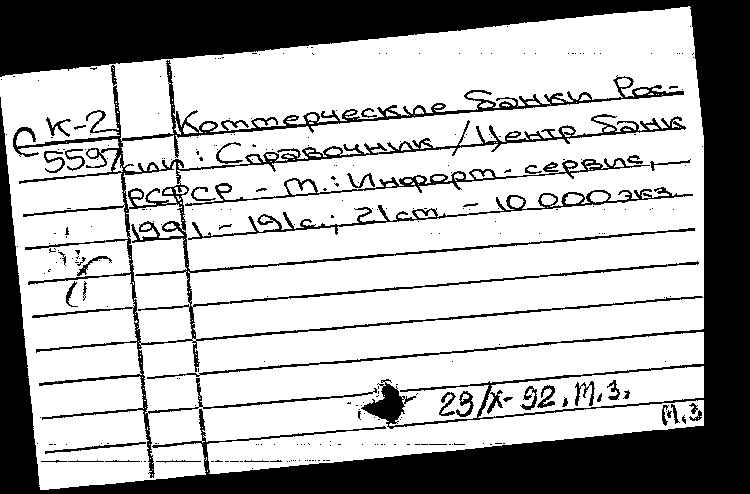 С К-2 Коммерческие банки Рос-
5597 сии : Справочник / Центр. банк
РСФСР. - М. : Информ-сервис,
1991. - 191 с. ; 21 см. - 10 000 экз.
29/X-92. М.З.
М.З